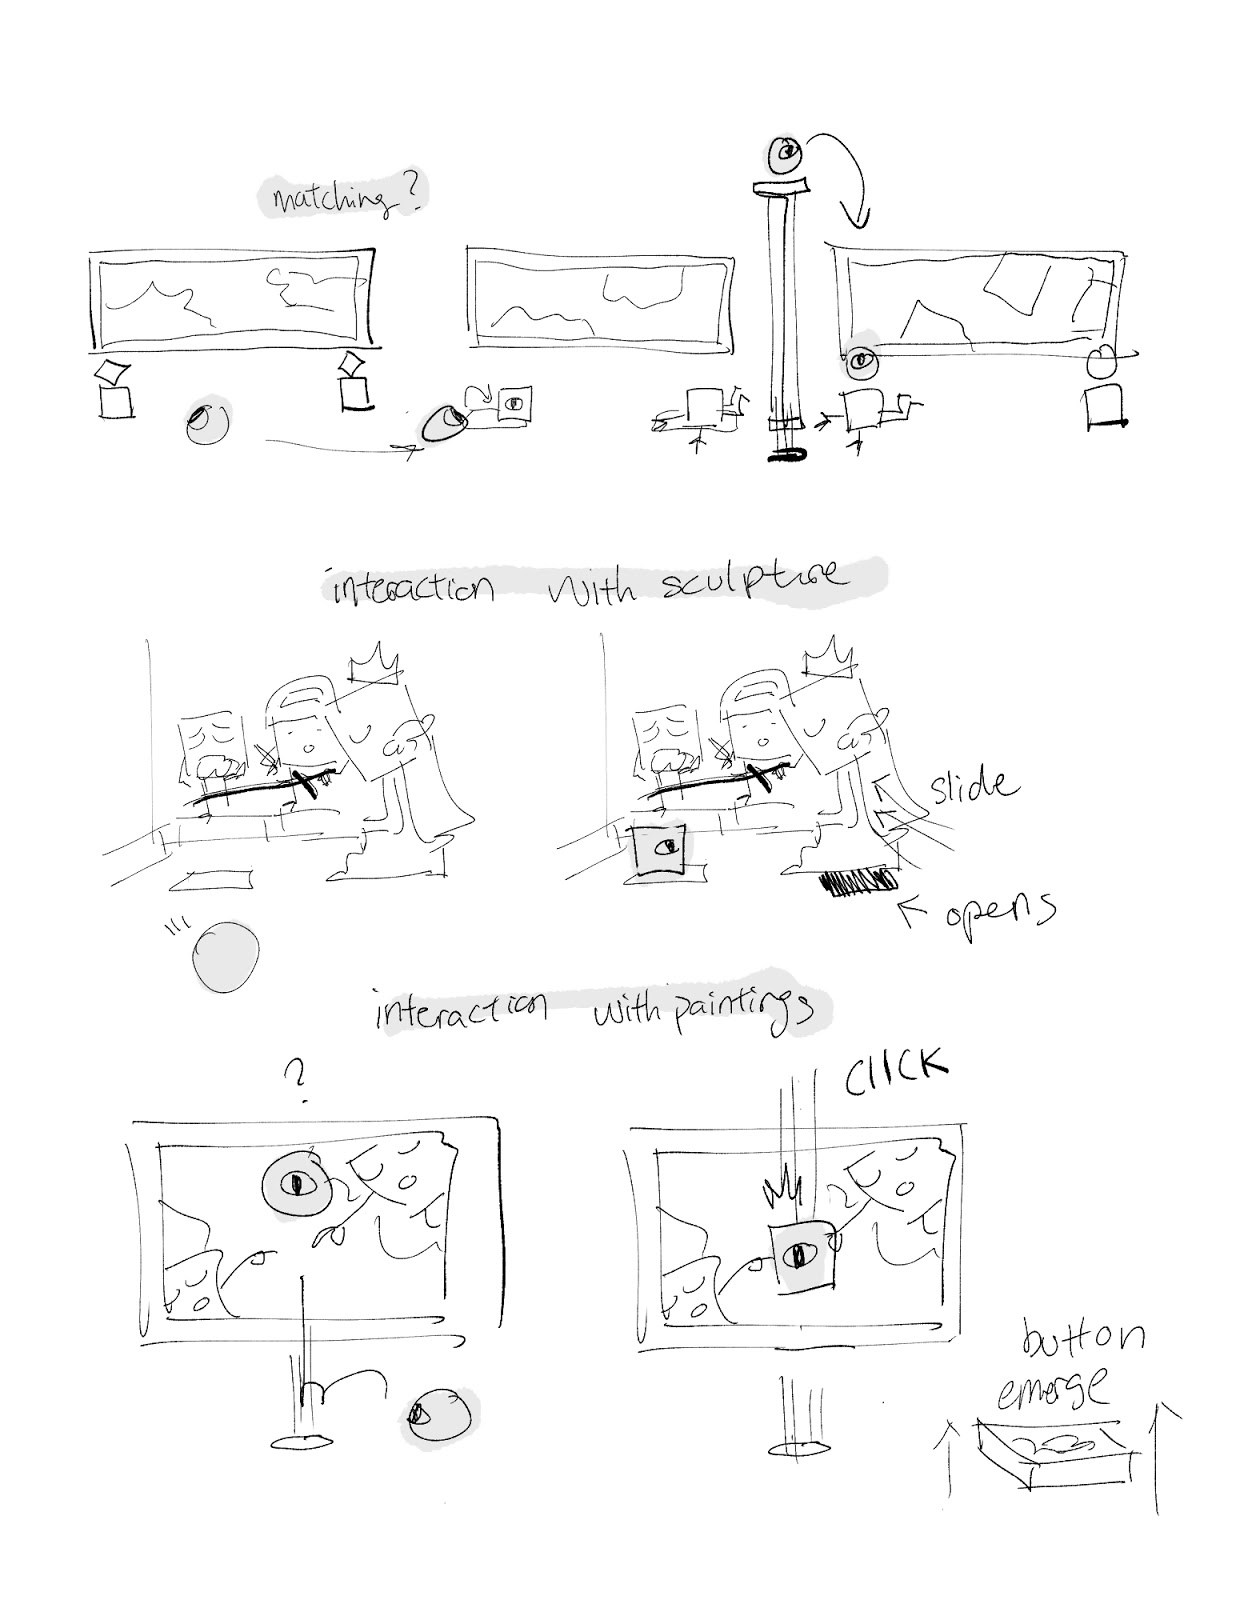 matching?
interaction with sculpture
slide
opens
interaction with paintings
?
CLICK
button
emerge